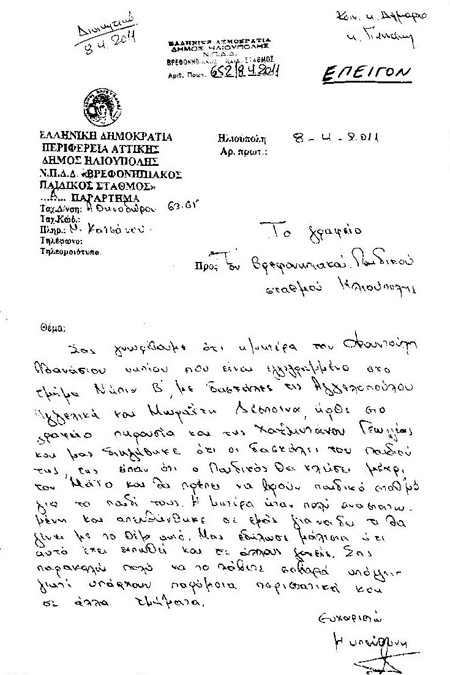 Διοικητικό
8.4.2011
ΕΛΛΗΝΙΚΗ ΔΗΜΟΚΡΑΤΙΑ
ΔΗΜΟΣ ΗΛΙΟΥΠΟΛΗΣ
Ν.Π.Δ.Δ.
ΒΡΕΦΟΝΗΠΙΑΚΟΣ ΠΑΙΔ. ΣΤΑΘΜΟΣ
Αριθ. Πρωτ. 652/8.4.2011
Κοιν. κ. Δήμαρχο
ΕΠΕΙΓΟΝ
ΕΛΛΗΝΙΚΗ ΔΗΜΟΚΡΑΤΙΑ
ΠΕΡΙΦΕΡΕΙΑ ΑΤΤΙΚΗΣ
ΔΗΜΟΣ ΗΛΙΟΥΠΟΛΗΣ
Ν.Π.Δ.Δ «ΒΡΕΦΟΝΗΠΙΑΚΟΣ
ΠΑΙΔΙΚΟΣ ΣΤΑΘΜΟΣ»
ΠΑΡΑΡΤΗΜΑ
Ταχ.Δ/νση: 63.61
Ταχ.Κώδ.:
Πληρ.: Κατσάνου
Τηλέφωνο:
Τηλεομοιότυπο:
Ηλιούπολη 8-4-2011
Αρ. πρωτ.:
Το γραφείο
Προς: Του Βρεφονηπιακού Παιδικού
σταθμού Ηλιούπολης
Θέμα:
Σας γνωρίζουμε ότι η μητέρα του
Αθανάσιου νηπίου που είναι εγγεγραμμένο στο
τμήμα Νήπια Β', με δασκάλες τις Αγγελοπούλου
Αγγελικά και Μωραΐτη Δέσποινα, ήρθε στο
γραφείο παρουσία και της Γεωργίας
και μας ότι οι δασκάλες του παιδιού
της, της είπαν ότι ο Παιδικός θα κλείσει μέχρι
τον Μάϊο και θα πρέπει να βρουν παιδικό σταθμό
για το παιδί τους. Η μητέρα ήταν πολύ αναστατω-
μένη και απευθύνθηκε σε εμάς για να δει τι θα
γίνει με το θέμα αυτό. Μας δήλωσε μάλιστα ότι
αυτό έχει ειπωθεί και σε άλλους γονείς. Σας
παρακαλώ πολύ να το λάβετε σοβαρά υπόψιν
γιατί υπάρχουν παρόμοια περιστατικά και
σε άλλα τμήματα.
Ευχαριστώ
Η υπεύθυνη